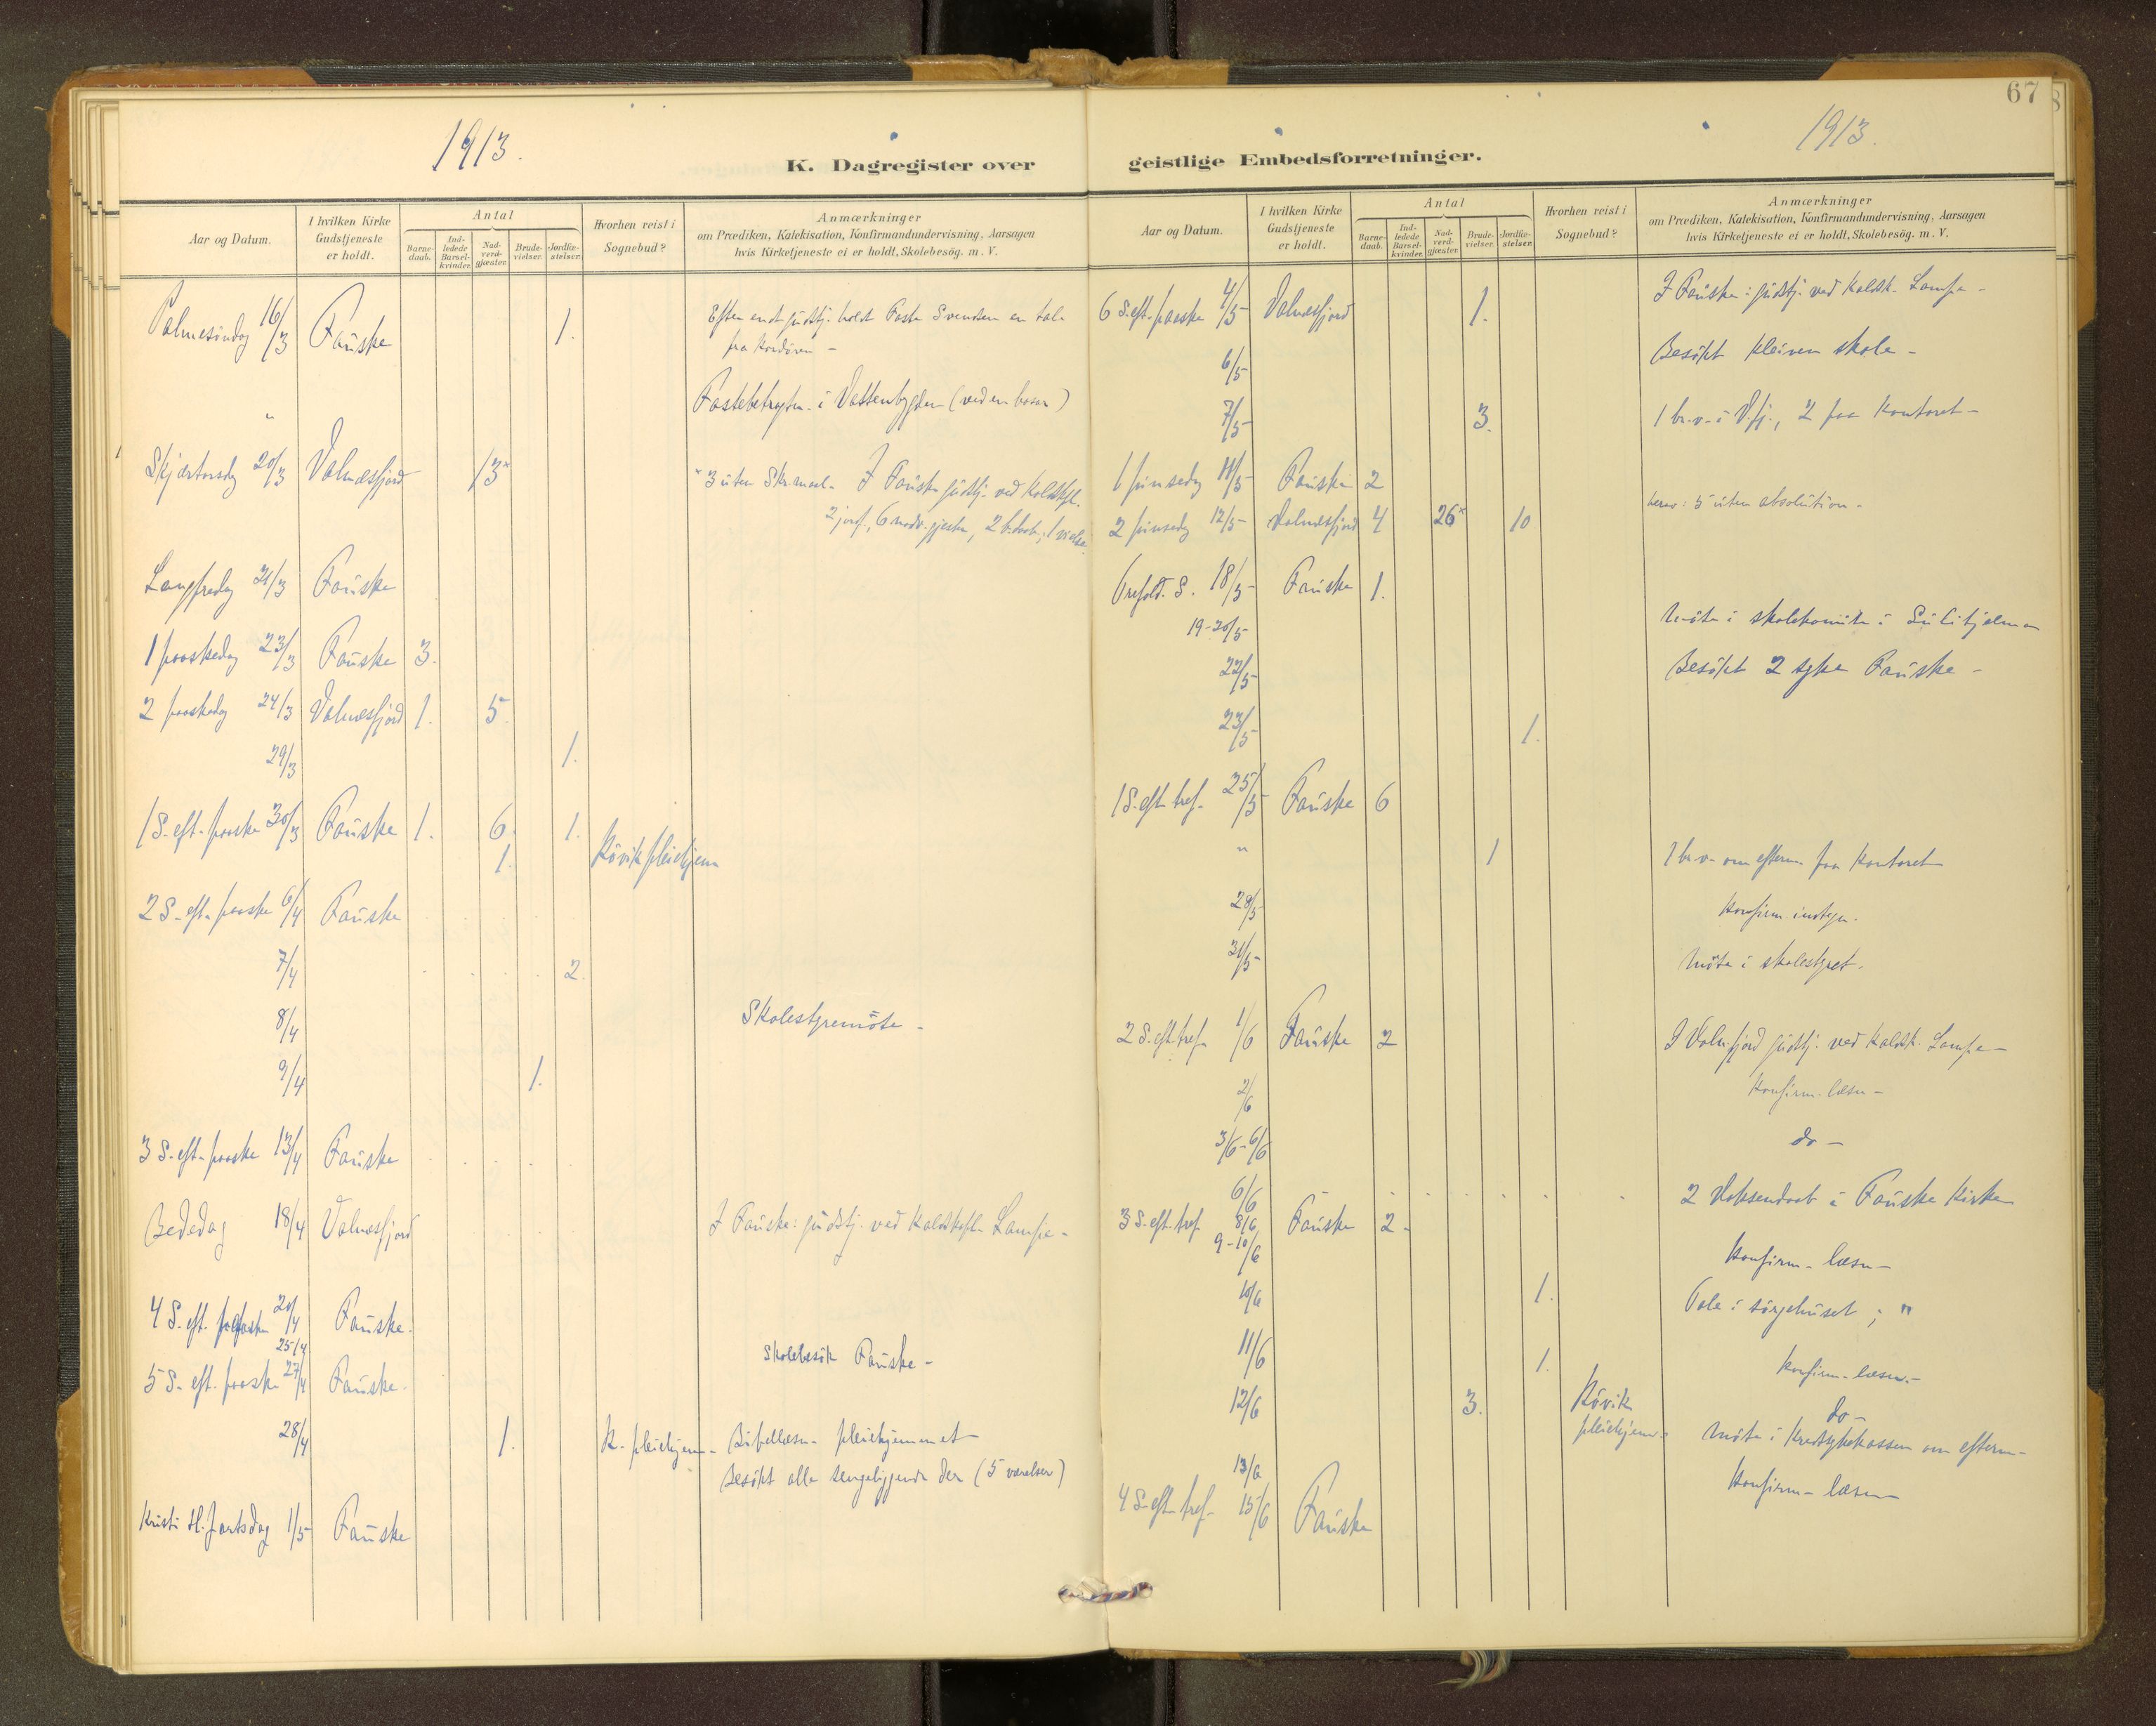 1913.
K. Dagregister over
Aar og Datum.
I hvilken Kirke Gudstjeneste er holdt.
Antal
Barne-daab.
Ind-ledede Barsel-kvinder.
Nad-verd-gjæster.
Brude-vielser.
Jordfæ-stelser.
Hvorhen reist i Sognebud?
Anmærkninger
om Prædiken, Katekisation, Konfirmandundervisning, Aarsagen
hvis Kirketjeneste ei er holdt, Skolebesög. m. V.
Palmesöndag 16/3 Fauske 1. Efter endt gudstj. holdt Svendsen en tale
fra kordören -
" Fastebetragtn. i Vattenbygden (ved en basar)
Skjærtorsdag 20/3 Valnesfjord 13* * 3 uten Skr.maal. I Fauske gudstj. ved Kaldskpl.
2 jordf., 6 nadv.gjester, 2 b.daab, 1 vielse.
Langfredag 21/3 Fauske
1 paaskedag 23/3 Fauske 3.
2 paaskedag 24/3 Valnesfjord 1. 5.
29/3 1.
1 S. eft. paaske 30/3 Fauske 1. 6 1.
1. Kövik pleiehjem
2 S. eft. paaske 6/4 Fauske
7/4 2.
8/4 Skolestyremöte -
9/4 1.
3 S. eft. paaske 13/4 Fauske
Bededag 18/4 Valnesfjord I Fauske: gudstj. ved Kaldskpl. Lampe -
4 S. eft. paaske 20/4 Fauske.
25/4 Skolebesök Fauske -
5 S. eft. paaske 27/4 Fauske.
28/4 1. K. pleiehjem - Bibellæsn. pleiehjemmet
Besökt alle sengeliggende der (5 værelser)
Kristi H.fartsdag 1/5 Fauske
67
1913.
geistlige Embedsforretninger.
Aar og Datum.
I hvilken Kirke Gudstjeneste er holdt.
Antal
Barne-daab.
Ind-ledede Barsel-kvinder.
Nad-verd-gjæster.
Brude-vielser.
Jordfæ-stelser.
Hvorhen reist i Sognebud?
Anmærkninger
om Prædiken, Katekisation, Konfirmandundervisning, Aarsagen
hvis Kirketjeneste ei er holdt, Skolebesög. m. V.
6 S. eft. paaske 4/5 Valnesfjord 1. I Fauske: gudstj. ved Kaldsk. Lampe -
6/5 Besökt Kleiven skole -
7/5 3. 1 br.v. i V.fj., 2 paa Kontoret -
1 pinsedag 11/5 Fauske 2
2 pinsedag 12/5 Valnesfjord 4 26* 10 herav: 5 uten absolution -
Trefold. S. 18/5 Fauske 1.
19-20/5 Möte i skolekomite i Sulitjelma
22/5 Besökt 2 syke Fauske -
23/5 1.
1 S. eft. tref. 25/5 Fauske 6
" 1 1 br.v. om efterm. paa Kontoret
28/5 Konfirm. indtegn.
31/5 Möte i skolestyret.
2 S. eft. tref. 1/6 Fauske 2 I Valn.fjord gudstj. ved Kaldsk. Lampe -
2/6 Konfirm. læsn -
3/6-6/6 do -
6/6 2 Voksendaab i Fauske Kirke
3 S. eft. tref. 8/6 Fauske 2 -
9-10/6 Konfirm. læsn -
10/6 1. Tale i sörgehuset; "
11/6 1. Konfirm. læsn. -
12/6 3. Kövik pleiehjem - do -
Möte i Kredssykekassen om efterm -
13/6 Konfirm - læsn
4 S. eft. tref. 15/6 Fauske